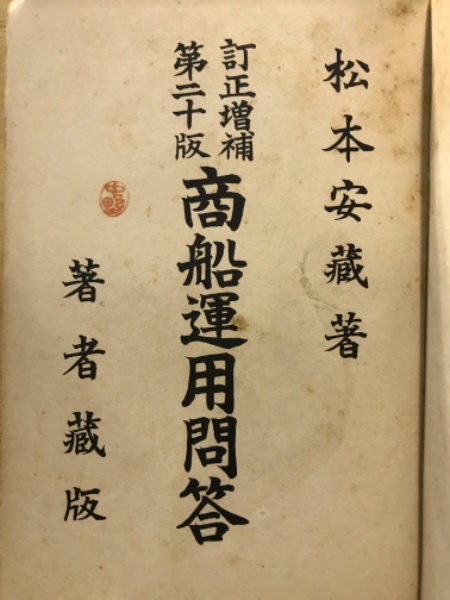 松本安藏著
訂正増補
第二十版
商船運用問答
著者藏版